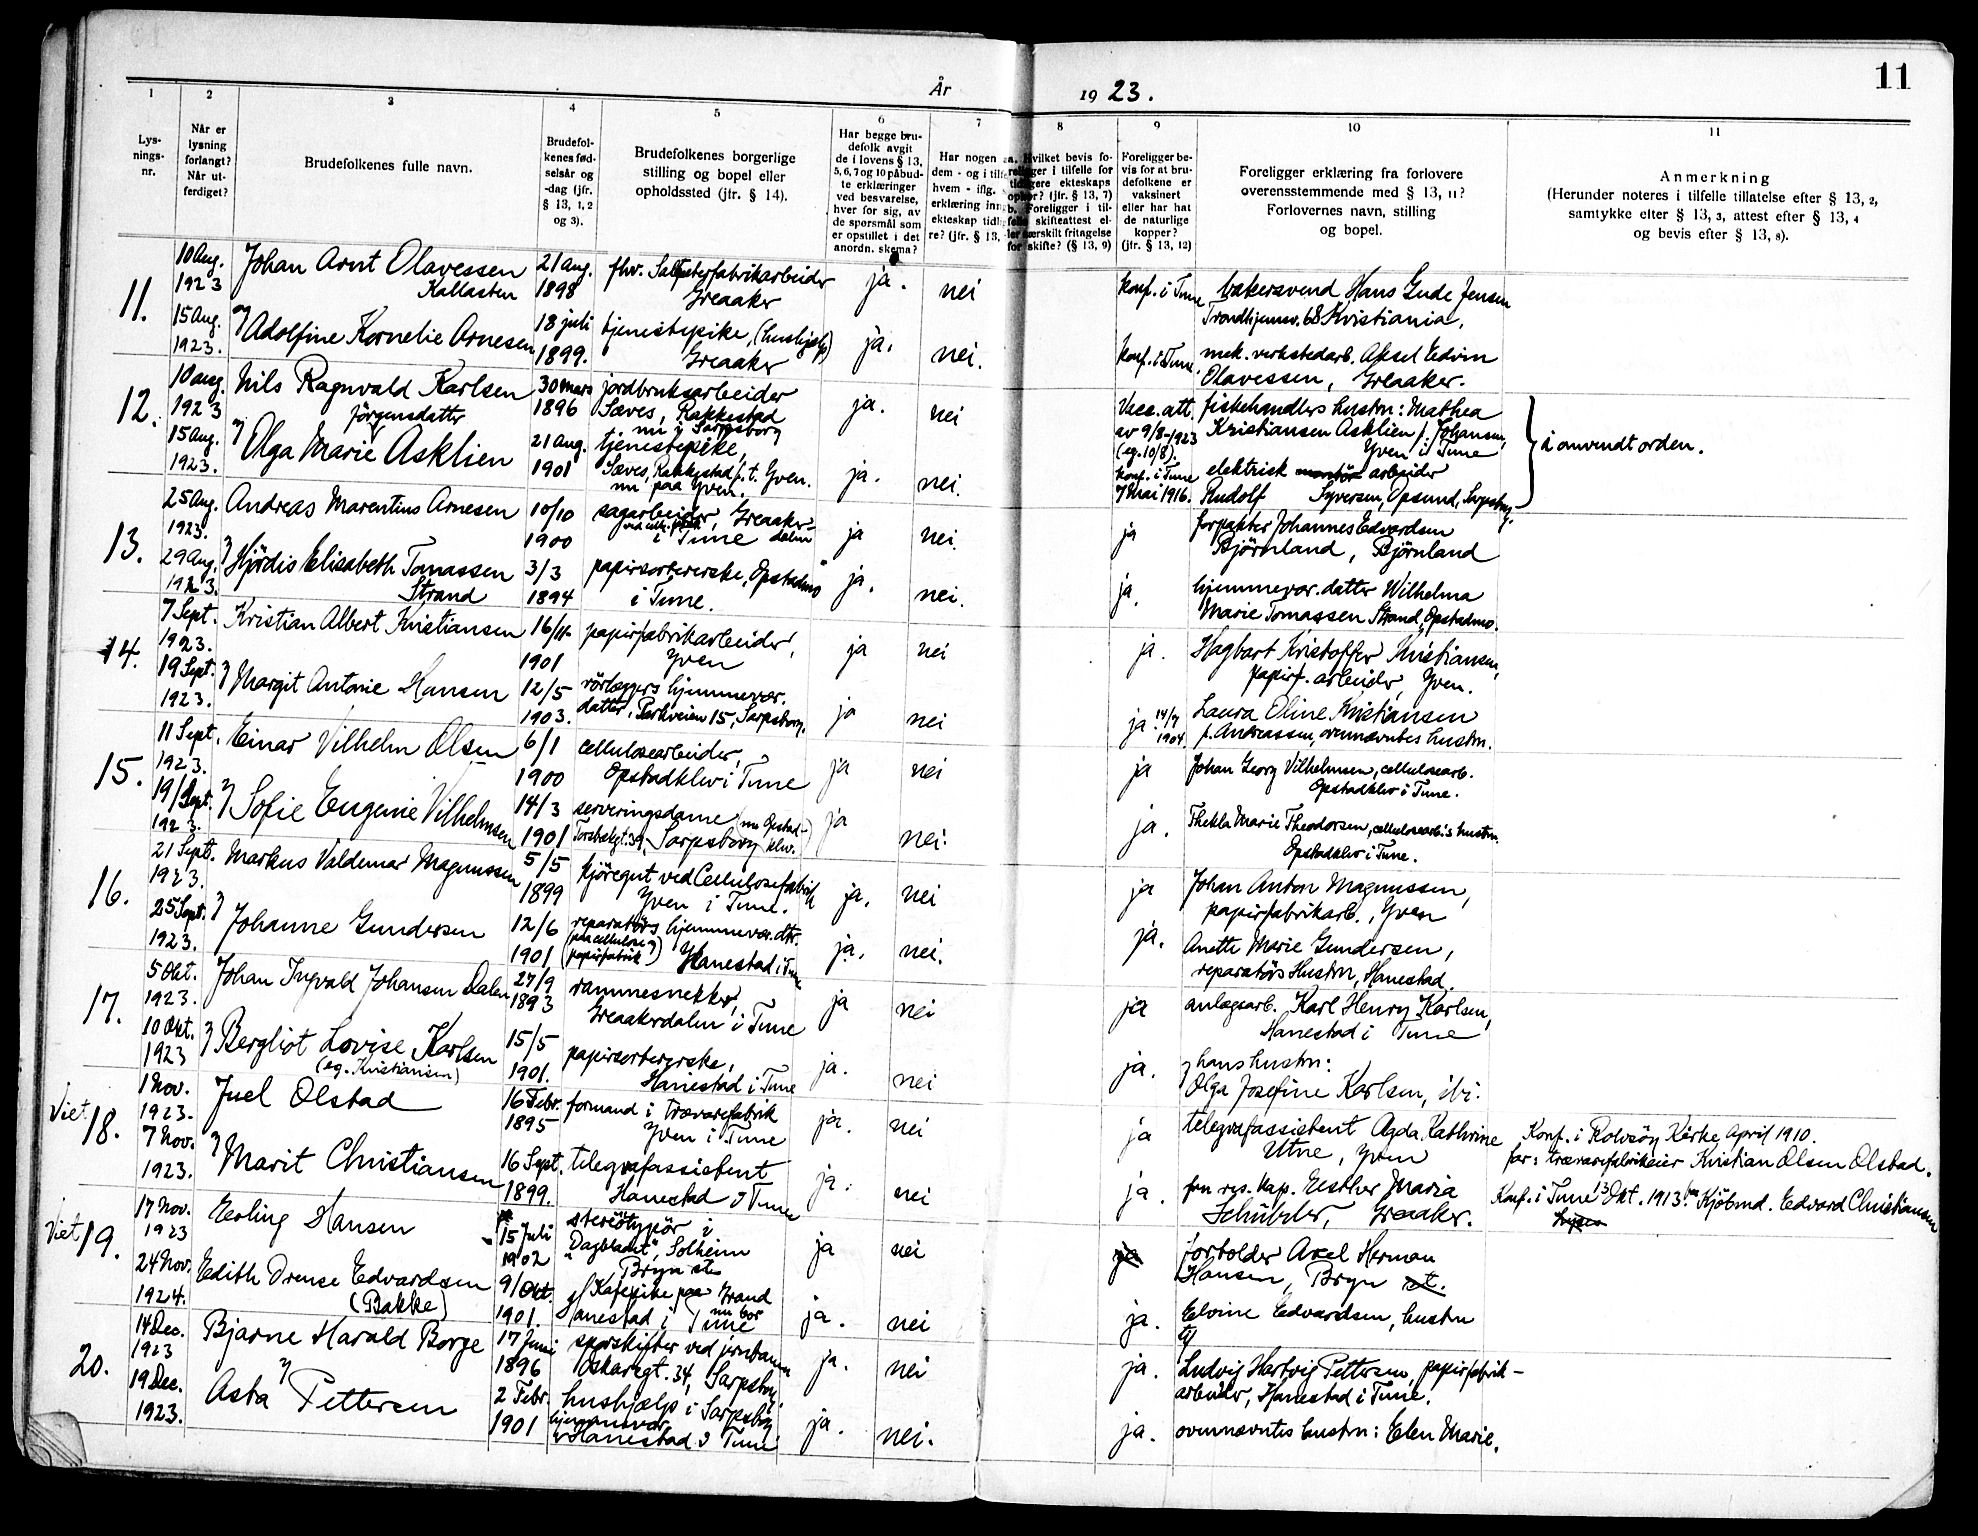 11
År 1923.
1 2 3 4 5 6 7 8 9 10 11
Lys-
nings-
nr.
Når er
lysning
forlangt?
Når ut-
ferdiget?
Brudefolkenes fulle navn.
Brudefol-
kenes fød-
selsår og
-dag (jfr.
§ 13, 1, 2
og 3).
Brudefolkenes borgerlige
stilling og bopel eller
opholdssted (jfr. § 14).
Har begge bru-
defolk avgit
de i lovens § 13,
5, 6, 7 og 10 påbud-
te erklæringer
ved besvarelse,
hver for sig, av
de spørsmål som
er opstillet i det
anordn. skema?
Har nogen
dem - og i tilfe
hvem - iflg. §
erklæring inn
ekteskap tidl
re? (jfr. § 13,
a. Hvilket bevis fo-
religger i tilfelle for
tidligere ekteskaps
ophør? (jfr. § 13, 7)
b. Foreligger i til-
felle skifteattest el-
ler særskilt fritagelse
for skifte? (§ 13, 9)
Foreligger be-
vis for at bru-
defolkene er
vaksinert
eller har hat
de naturlige
kopper?
(jfr. § 13, 12)
Foreligger erklæring fra forlovere
overensstemmende med § 13, 11?
Forlovernes navn, stilling
og bopel.
Anmerkning
(Herunder noteres i tilfelle tillatelse efter § 13, 2,
samtykke efter § 13, 3, attest efter § 13, 4
og bevis efter § 13, 8).
11.
10 Aug.
1923
Johan Arnt Olavessen
Kallasten
21 Aug.
1898
fhv. Salpeterfabrikarbeider
Greaaker
ja. nei
Konf. i Tune
bakersvend Hans Gude Jensen
Trondhjemsv. 68 Kristiania.
15 Aug.
1923.
og Adolfine Kornelie Arnesen
18 juli
1899.
tjenestepike, (hushjelp)
Greaaker
ja. nei.
Konf. i Tune.
mek. verkstedarb. Aksel Edvin
Olavessen, Greaaker.
12.
10 aug.
1923
Nils Ragnvald Karlsen
30 mars
1896
jordbruksarbeider
Sæves, Rakkestad
nu i Sarpsborg
ja. nei
Vacc. att.
av 9/8-1923
(eg. 10/8).
fiskehandlers hustru: Mathea
Kristiansen Asklien f. Johansen,
Yven i Tune
} i omvendt orden.
15 Aug.
1923.
Jörgensdatter
og Olga Marie Asklien
21 Aug.
1901
tjenestepike,
Sæves, Rakkestad p. t. Yven.
nu paa Yven.
ja. nei.
Konf. i Tune
7 Mai 1916.
elektrisk montör arbeider
Rudolf Syversen, Opsund, Sarpsborg.
13.
25 Aug.
1923.
Andreas Marentius Arnesen
10/10
1900
sagarbeider, Greaker-
dalen
i Tune
ja nei.
ja
forpakter Johannes Edvardsen
Björnland, Björnland
29 Aug.
1923.
og Hjördis Elisabeth Tomassen
Strand
3/3
1894
papirsortererske, Opstadmo
i Tune.
ja. nei.
ja.
hjemmevær. datter Wilhelma
Marie Tomassen Strand, Opstadmo.
14.
7 Sept.
1923.
Kristian Albert Kristiansen
16/11
1901
papirfabrikarbeider,
Yven
ja nei
ja.
Hagbart Kristoffer Kristiansen,
papirf. arbeider, Yven.
19 Sept.
1923.
og Margit Antonie Hansen
12/5
1903.
rörlæggers hjemmevær.
datter, Parkveien 15, Sarpsborg.
ja nei
ja 14/7
1904
Laura Oline Kristiansen
f. Andreassen, ovennævntes hustru.
15.
11 Sept.
1923.
Einar Vilhelm Olsen
6/1
1900
cellulosearbeider,
Opstadklev i Tune
ja nei
ja
Johan Georg Vilhelmsen, cellulosearb.
Opstadklev i Tune.
19/Sept.
1923.
og Sofie Eugenie Vilhelmsen
14/3
1901
serveringsdame (nu Opstad-
klev.)
39, Sarpsborg
ja nei.
ja.
Thekla Marie Theodorsen, cellulosearb.s hustru
Opstadklev i Tune.
16.
21 Sept.
1923.
Markus Valdemar Magnussen
5/5
1899
kjöregut ved Cellulosefabrik
Yven i Tune.
ja. nei
ja
Johan Anton Magnussen,
papirfabrikarb., Yven
25 Sept.
1923.
og Johanne Gundersen
12/6
1901
reparatörs hjemmevær. dtr.
(paa cellulose og
papirfabrik) Hanestad i Tune
ja. nei.
ja.
Anette Marie Gundersen,
reparatörs Hustru, Hanestad.
17.
5 Okt.
1923.
Johan Ingvald Johansen Dalen
27/9
1893
rammesnekker,
Greaakerdalen i Tune
ja nei
ja
anlægsarb. Karl Henry Karlsen,
Hanestad i Tune
10 Okt.
1923
og Bergliot Lovise Karlsen
(eg. Kristiansen)
15/5
1901.
papirsorterske,
Hanestad i Tune
ja. nei
ja.
og hans hustru:
Olga Josefine Karlsen, ibi.
Viet 18.
1 Nov.
1923.
Juel Olstad
16 Febr.
1895
formand i trævarefabrik
Yven i Tune
ja. nei
ja
telegrafassistent Agda Kathrine
Utne, Yven
Konf. i Rolvsöy Kirke, April 1910.
far: trævarefabrikeier Kristian Olsen Olstad.
7 Nov.
1923.
og Marit Christiansen
16 Sept.
1899.
telegrafassistent
Hanestad i Tune
ja. nei
ja.
fru res. kap. Esther Maria
Schübeler, Greaaker.
Konf. i Tune 13 Okt. 1913. Kjöbmd. Edvard Christiansen
Viet 19.
17 Nov.
1923
Erling Hansen
15 Juli
1902
stereotypör i
"Dagbladet", Solheim
Bryn st.
ja nei
ja
forvolder Axel Herman
Hansen, Bryn st.
24 Nov.
1924.
Edith Drense Edvardsen
(Bakke)
9/Okt.
1901.
Kafépike paa Grand
nu bor
Hanestad i Tune
ja. nei
ja.
Elvine Edvardsen, hustru
20.
14 Dec.
1923
Bjarne Harald Borge
17 Juni
1896
sporskifter ved jernbanen
Oskarsgt. 34, Sarpsborg.
ja. nei
ja.
Ludvig Hartvig Pettersen, papirfabrik-
arbeider, Hanestad i Tune.
19 Dec.
1923.
og
Asta Pettersen
2 Febr.
1901
hushjælp i Sarpsborg
hjemmevær.
Hanestad i Tune
ja. nei.
ja.
ovennævntes hustru: Elen Marie.